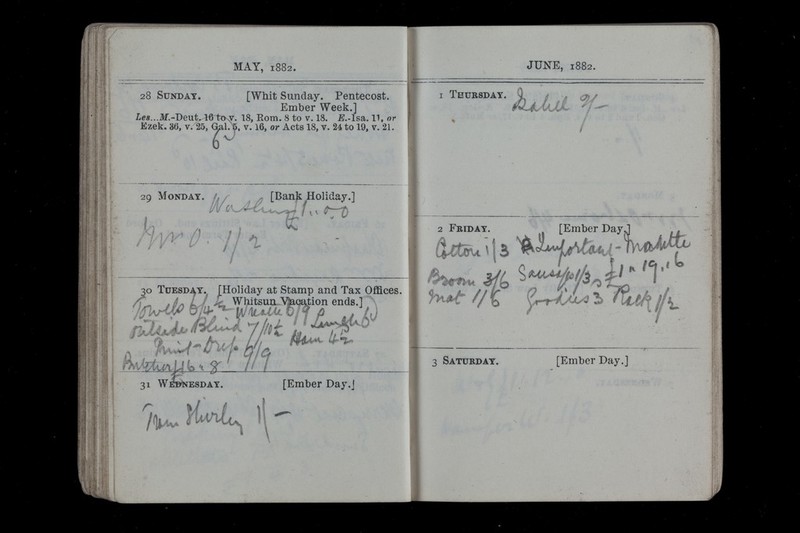 MAY, 1882.
28 SUNDAY. [Whit Sunday. Pentecost.
Ember Week.]
Les...M.-Deut. 16 to v. 18, Rom. 8 to v. 18. E.-Isa. 11, or
Ezek. 36, v. 25, Gal. 5, v. 16, or Acts 18, v. 24 to 19, v. 21.
29 MONDAY. [Bank Holiday.]
Washing
1/2
30 TUESDAY. [Holiday at Stamp and Tax Offices.
Whitsun Vacation ends.]
Towels 6/4½ 6/9
Outside Blind 7/10½
Ham 4½
9/9
Butcher
31 WEDNESDAY. [Ember Day.]
Tram Shirley 1/-
JUNE, 1882.
1 THURSDAY.
Isabell 9/-
2 FRIDAY. [Ember Day.]
Cotton 1/3
Broom 3/6 £1 " 19 " 6
Mat 1/6 Goodies 3 Rack 1/2
3 SATURDAY. [Ember Day.]